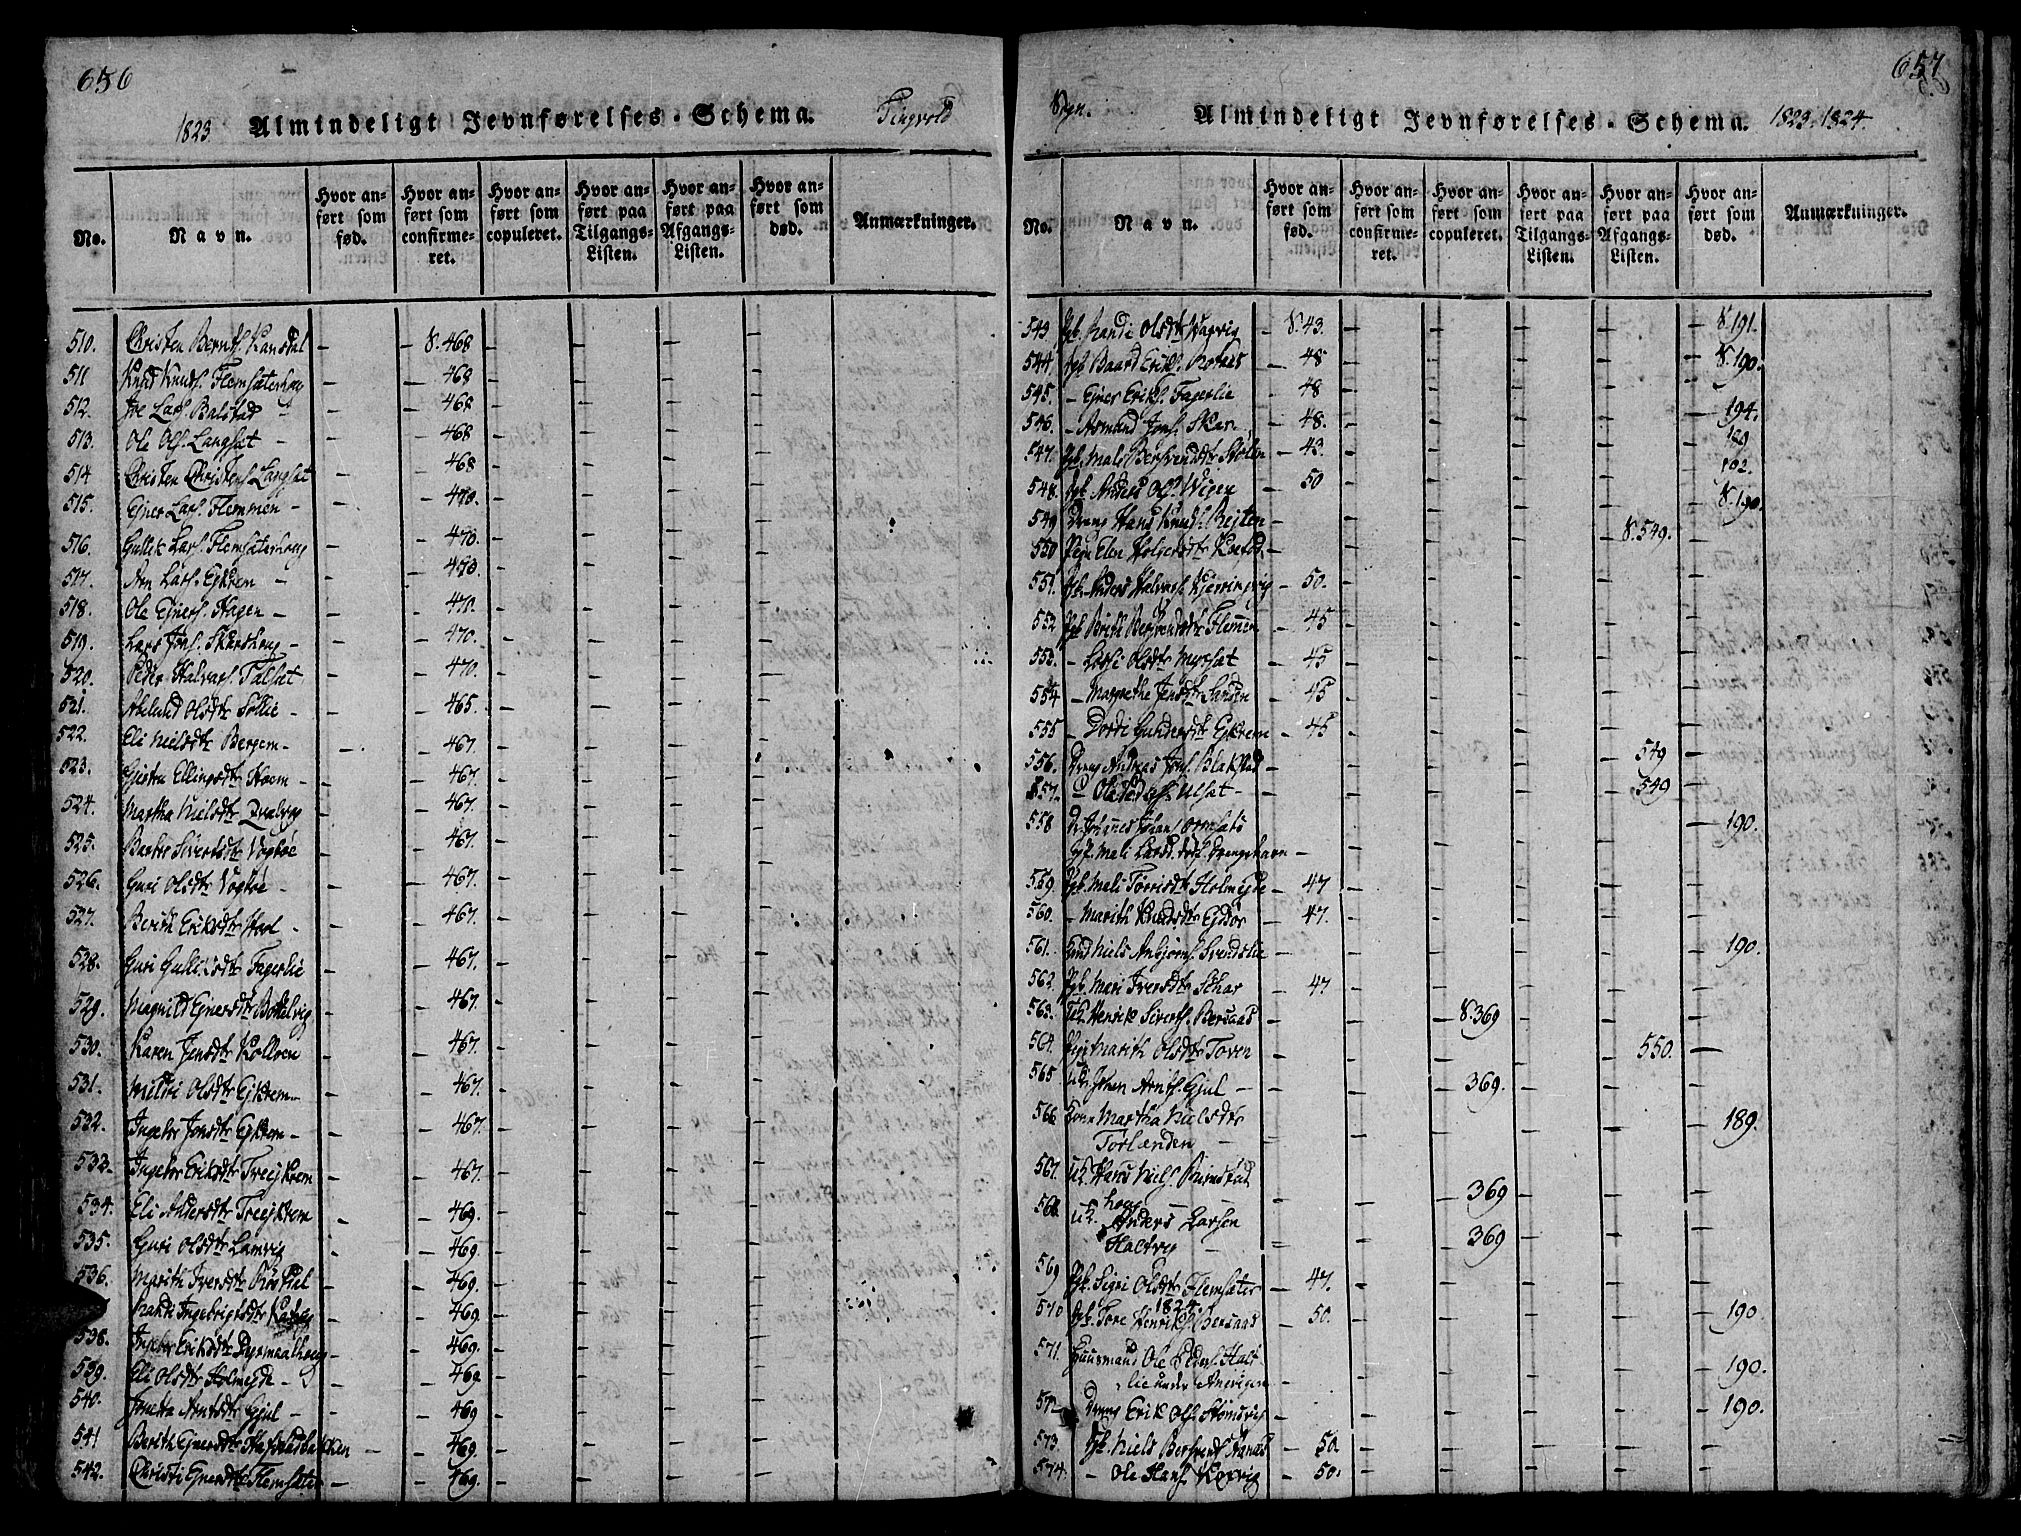 656
1823. Almindeligt Jevnførelses-Schema. Tingvold
No. Navn. Hvor anført som fød. Hvor anført som confirmeret. Hvor anført som copuleret. Hvor anført paa Tilgangs-Listen. Hvor anført paa Afgangs-Listen. Hvor anført som død. Anmærkninger.
510. Christen Bernts. Kansdal - S. 468
511 Knud Knuds. Flemsæterhoug - 468
512. Lars. Balstad - 468
513. Ole Ols. Langsæt - 468
514 Christen Christens. Langsæt - 468
515. Ejner Lars. Flemmen - 470.
516. Gullik Lars. Flemsæterhoug - 470.
517. Arn Lars. Eykrem - 470.
518. Ole Ejners. Hagen - 470.
519. Lars Jons. Skarshoug - 470.
520. Peder Halvars. Talsæt - 470.
521. Olsdtr Sollie - 465.
522. Eli Nielsdtr Bergem - 467.
523. Gjertru Ellingsdtr Hoem - 467.
524. Martha Nielsdtr Qvalvog - 467.
525. Siversdtr Vogbøe - 467.
526. Guri Olsdtr Vogbøe - 467.
527. Berith Eriksdtr Stoel - 467.
528. Guri Gulliksdtr Fagerlie - 467.
529. Magnild Ejnersdtr Bottelvig - 467.
530. Karen Jensdtr Kollven - 467.
531. Mildri Olsdtr Eykrem - 467.
532. Ingebor Jonsdtr Eykrem - 467.
533. Ingebor Eriksdtr Treeykrem - 467.
534. Eli Andersdtr Treeykrem - 469.
535. Guri Olsdtr Lamvig - 469.
536. Marith Iversdtr - 469.
Randi Ingebrigtsdtr - 469.
538. Ingebor Eriksdtr Dyrmaalhoug - 469.
539. Eli Olsdtr Holmeyde - 469
540. Arnesdtr Gjul - 469
541 Berith Ejnersdtr - 469.
542. Christi Ejnersdtr Flemsæter - 469.
657
Sogn. Almindeligt Jevnførelses-Schema. 1823. 1824.
No. Navn. Hvor anført som fød. Hvor anført som confirmeret. Hvor anført som copuleret. Hvor anført paa Tilgangs-Listen. Hvor anført paa Afgangs-Listen. Hvor anført som død. Anmærkninger.
543 Pgb. Randi Olsdtr Vaagvig - S. 43. S. 191.
544. Dgb Baard Eriks. - 48 S. 190.
545. - Ejner Eriks. Fagerlie - 48
546. - Asmund Jons. Skar - 48. 194.
547. Pgb. Mali Bersvendsdtr - 43. 189
548. Dgb Anders Ols. Wigen - 50 192.
549 Dreng Hans Knuds. Rejten - S. 190.
550 Pige Elen Holgersdtr - S. 549.
551. Dgb. Anders Halvars. Kjerringvig - 50.
552 Pgb. Brith Bersvendsdtr Flemmen - 45
553. - Olsdtr Myrsæt - 45
554 - Margrethe Jensdtr Sanden - 45
555 - Dordi Gundersdtr Eykrem - 45
556. Dreng Andreas Jons. Blakstad - 549
557. D Ole Ulsæt - 549
558 Johannes Johans. - 190.
Mali Larsd.
559. Pgb. Mali Torrisdtr Holmeyde - 47
560. - Marith Knudsdtr Ejdsør - 47.
561. Niels Anbjørns. Svendslie - 190.
562. Pgb. Mari Iversdtr Schar - 47
563. Uk. Henrik Siverts. Bersaas - S. 369
564. Pige Marith Olsdtr Toven - 550.
565 Uk. Johan Arnts. Gjul - 369.
566 Kone Martha Nielsdtr
Torlænden - 189.
567. Uk. Hans Niels.
houg - 369
568. Uk. Anders Larsen
Halsvig - 369
569 Pgb. Sigri Olsdtr Flemsæter - 47.
1824.
570 Dgb. Tore Henriks. Bersaas - 50. 190
571. Huusmand Ole Peders. Hals-
lie under Angvigen - 190.
572 Dreng Erik Ols. Stromsvig - 190.
573. Dgb. Niels Bersvends. - 50.
574. - Ole Hans. - 50.